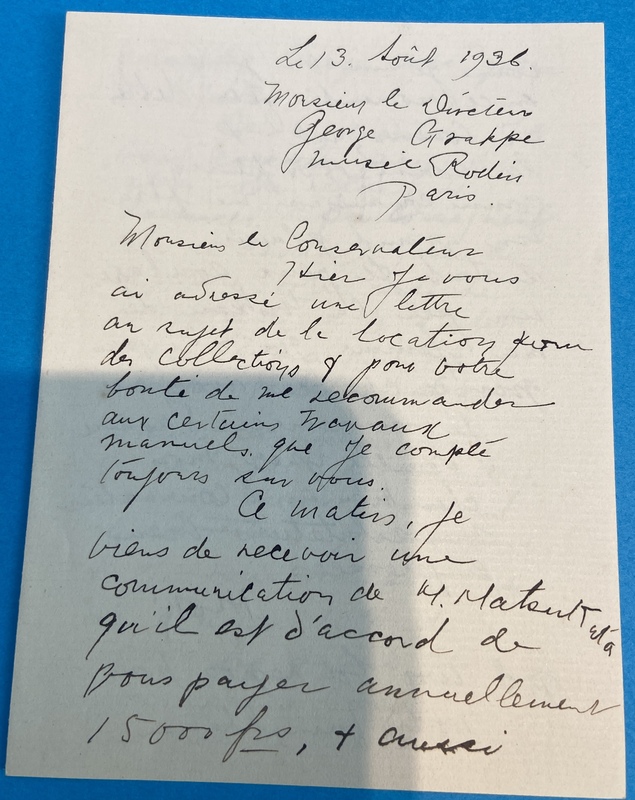 Le 13. Août 1936.
Monsieur le Directeur
George Grappe
Musée Rodin
Paris.
Monsieur le Conservateur
Hier je vous
ai adressé une lettre
au sujet de la location
des collections & pour votre
bonté de me recommander
aux certains travaux
manuels. que je compte
toujours sur vous.
Ce matin, je
viens de recevoir une
communication de M. Matsukata
qu'il est d'accord de
vous payer annuellement
15000 frs, & aussi